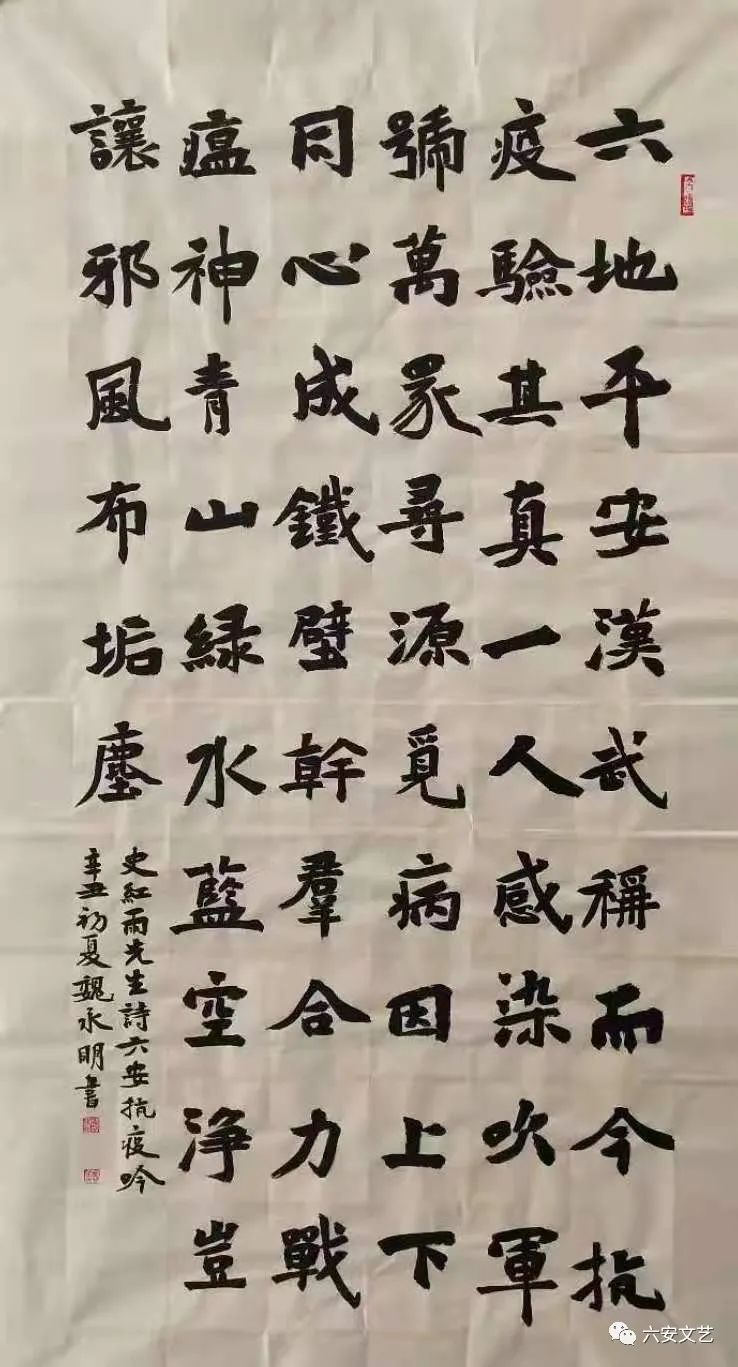 六地平安漢武稱而今抗
疫驗其真一人感染吹軍
號萬眾尋源覓病因上下
同心成鐵壁幹羣合力戰
瘟神青山緑水藍空淨豈
讓邪風布垢塵
史紅雨先生詩六安抗疫吟
辛丑初夏魏永明書
六安文艺